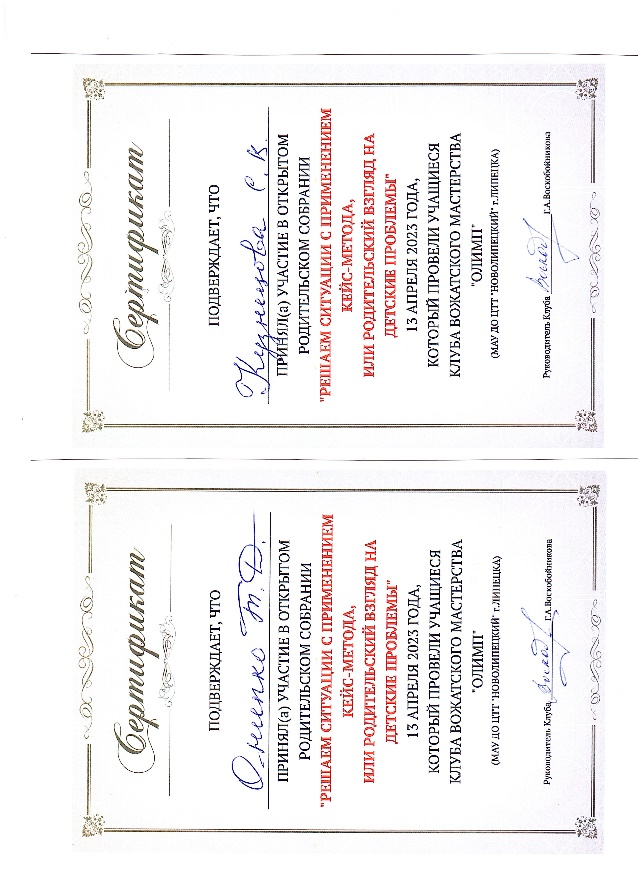 Сертификат
ПОДВЕРЖДАЕТ, ЧТО
Кузнецова С. В.
ПРИНЯЛ(а) УЧАСТИЕ В ОТКРЫТОМ
РОДИТЕЛЬСКОМ СОБРАНИИ
"РЕШАЕМ СИТУАЦИИ С ПРИМЕНЕНИЕМ
КЕЙС-МЕТОДА,
ИЛИ РОДИТЕЛЬСКИЙ ВЗГЛЯД НА
ДЕТСКИЕ ПРОБЛЕМЫ"
13 АПРЕЛЯ 2023 ГОДА,
КОТОРЫЙ ПРОВЕЛИ УЧАЩИЕСЯ
КЛУБА ВОЖАТСКОГО МАСТЕРСТВА
"ОЛИМП"
(МАУ ДО ЦТТ "НОВОЛИПЕЦКИЙ" г.ЛИПЕЦКА)
Руководитель Клуба Г.А.Воскобойникова
Сертификат
ПОДВЕРЖДАЕТ, ЧТО
Т. Д.
ПРИНЯЛ(а) УЧАСТИЕ В ОТКРЫТОМ
РОДИТЕЛЬСКОМ СОБРАНИИ
"РЕШАЕМ СИТУАЦИИ С ПРИМЕНЕНИЕМ
КЕЙС-МЕТОДА,
ИЛИ РОДИТЕЛЬСКИЙ ВЗГЛЯД НА
ДЕТСКИЕ ПРОБЛЕМЫ"
13 АПРЕЛЯ 2023 ГОДА,
КОТОРЫЙ ПРОВЕЛИ УЧАЩИЕСЯ
КЛУБА ВОЖАТСКОГО МАСТЕРСТВА
"ОЛИМП"
(МАУ ДО ЦТТ "НОВОЛИПЕЦКИЙ" г.ЛИПЕЦКА)
Руководитель Клуба Г.А.Воскобойникова